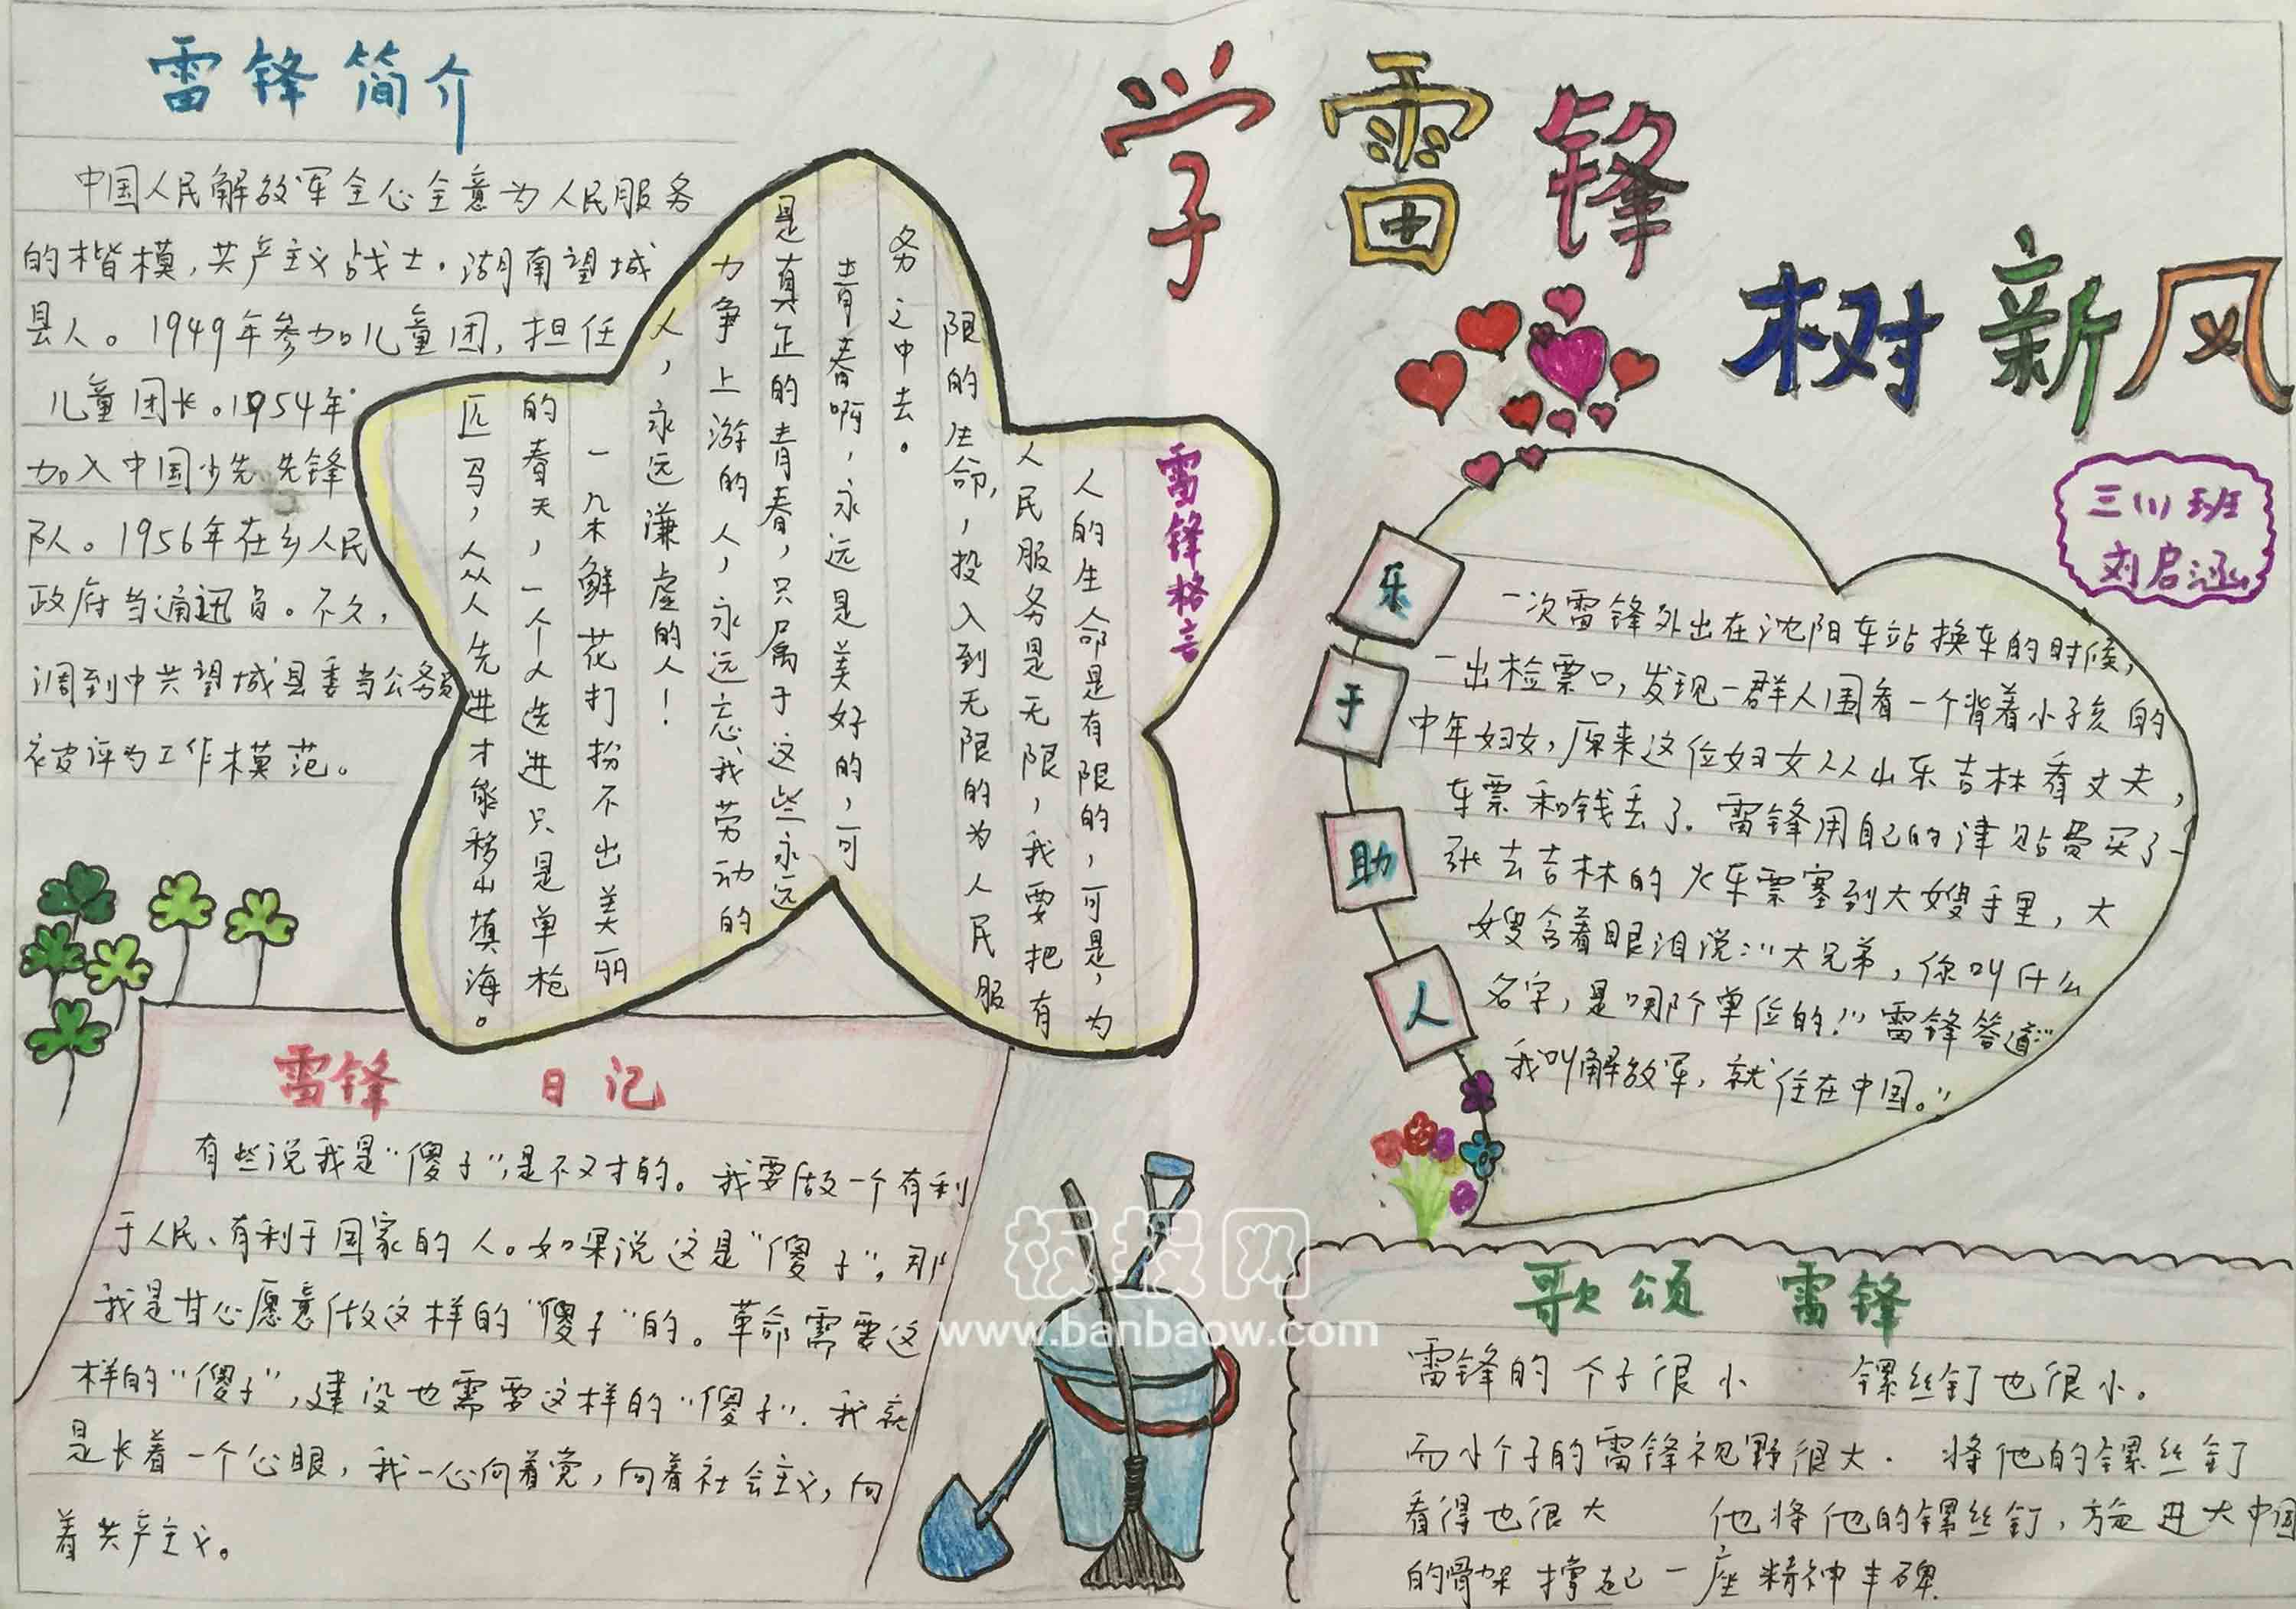 学雷锋
树新风
三(1)班
刘启涵
雷锋简介
中国人民解放军全心全意为人民服务
的楷模,共产主义战士。湖南望城
县人。1949年参加儿童团,担任
儿童团长。1954年
加入中国少先先锋
队。1956年在乡人民
政府当通迅员。不久,
调到中共望城县委当公务员
被评为工作模范。
雷锋格言
人的生命是有限的,可是,为
人民服务是无限,我要把有
限的生命,投入到无限的为人民服
务之中去。
青春啊,永远是美好的,可
是真正的青春,只属于这些永远
力争上游的人,永远忘我劳动的
人,永远谦虚的人!
一朵鲜花打扮不出美丽
的春天,一个人选进只是单枪
匹马,众人先进才能移山填海。
雷锋 日记
有些说我是“傻子”,是不又才的。我要做一个有利
于人民、有利于国家的人。如果说这是“傻子”,那
我是甘心愿意做这样的“傻子”的。革命需要这
样的“傻子”,建设也需要这样的“傻子”.我就
是长着一个心眼,我一心向着党,向着社会主义,向
着共产主义。
乐于助人
一次雷锋外出在沈阳车站换车的时候,
一出检票口,发现一群人围看一个背着小孩的
中年妇女,原来这位妇女从山东吉林看丈夫,
车票和钱丢了。雷锋用自己的津贴费买了一
张去吉林的火车票塞到大嫂手里,大
嫂含着眼泪说:“大兄弟,你叫什么
名字,是哪个单位的!”雷锋答道:“
我叫解放军,就住在中国。”
歌颂 雷锋
雷锋的个子很小 镙丝钉也很小。
而小个子的雷锋视野很大. 将他的镙丝钉
看得也很大 他将他的镙丝钉,旋进大中国
的骨架 撑起一座精神丰碑
板报网
www.banbaow.com